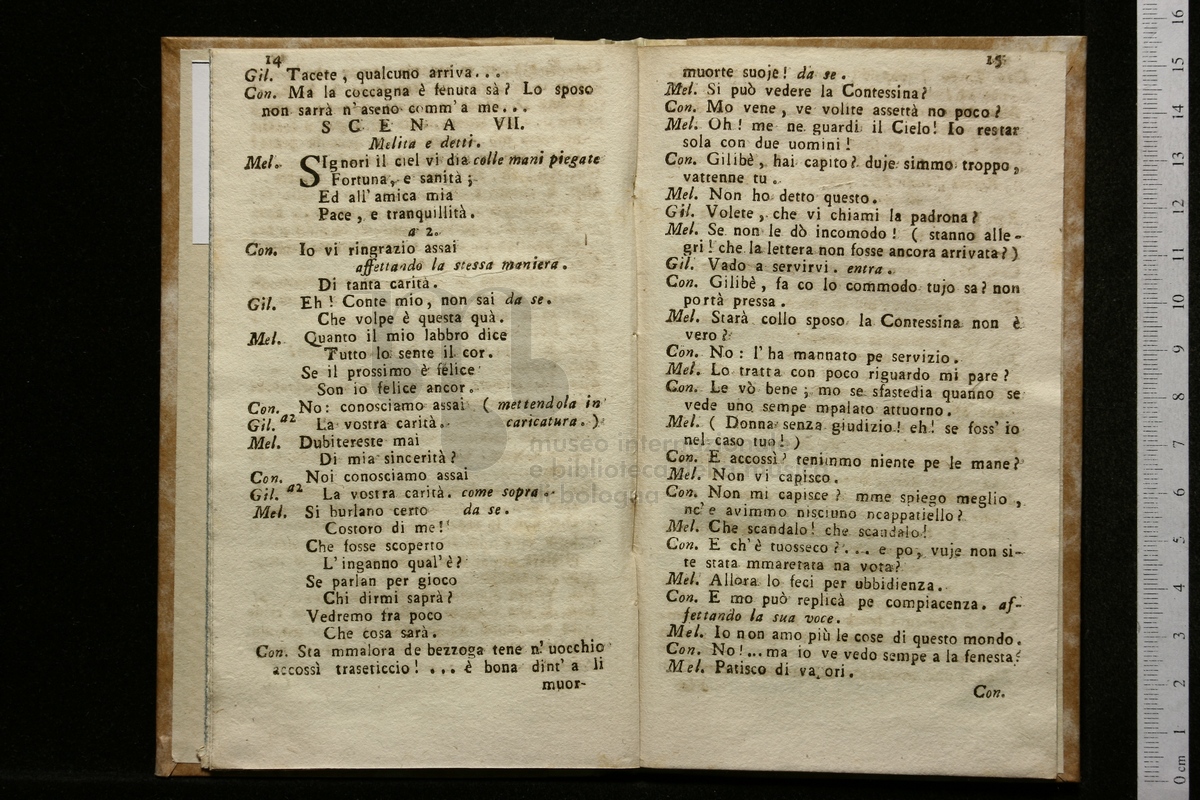 14
Gil. Tacete, qualcuno arriva...
Con. Ma la coccagna è fenuta sà? Lo sposo
non sarrà n'aseno comm'a me...
S C E N A VII.
Melita e detti.
Mel. SIgnori il ciel vi dia colle mani piegate
Fortuna, e sanità;
Ed all'amica mia
Pace, e tranquillità.
a 2.
Con. Io vi ringrazio assai
affettando la stessa maniera.
Di tanta carità.
Gil. Eh! Conte mio, non sai da se.
Che volpe è questa quà.
Mel. Quanto il mio labbro dice
Tutto lo sente il cor.
Se il prossimo è felice
Son io felice ancor.
Con. No: conosciamo assai ( mettendola in
Gil. a2 La vostra carità. caricatura. )
Mel. Dubitereste mai
Di mia sincerità?
Con. Noi conosciamo assai
Gil. a2 La vostra carità. come sopra.
Mel. Si burlano certo da se.
Costoro di me!
Che fosse scoperto
L'inganno qual'è?
Se parlan per gioco
Chi dirmi saprà?
Vedremo fra poco
Che cosa sarà.
Con. Sta mmalora de bezzoga tene n'uocchio
accossì traseticcio! ... è bona dint' a li
muor-
15
muorte suoje! da se.
Mel. Si può vedere la Contessina?
Con. Mo vene, ve volite assettà no poco?
Mel. Oh! me ne guardi il Cielo! Io restar
sola con due uomini!
Con. Gilibè, hai capito? duje simmo troppo,
vattenne tu.
Mel. Non ho detto questo.
Gil. Volete, che vi chiami la padrona?
Mel. Se non le dò incomodo! ( stanno alle-
gri! che la lettera non fosse ancora arrivata? )
Gil. Vado a servirvi. entra.
Con. Gilibè, fa co lo commodo tujo sa? non
portà pressa.
Mel. Starà collo sposo la Contessina non è
vero?
Con. No: l'ha mannato pe servizio.
Mel. Lo tratta con poco riguardo mi pare?
Con. Le vò bene; mo se sfastedia quanno se
vede uno sempe mpalato attuorno.
Mel. ( Donna senza giudizio! eh! se foss'io
nel caso tuo! )
Con. E accossì? tenimmo niente pe le mane?
Mel. Non vi capisco.
Con. Non mi capisce? mme spiego meglio,
nc'e avimmo nisciuno ncappatiello?
Mel. Che scandalo! che scandalo!
Con. E ch'è tuosseco?... e po, vuje non si-
te stata mmaretata na vota?
Mel. Allora lo feci per ubbidienza.
Con. E mo può replicà pe compiacenza. af-
fettando la sua voce.
Mel. Io non amo più le cose di questo mondo.
Con. No!...ma io ve vedo sempe a la fenesta?
Mel. Patisco di va ori.
Con.